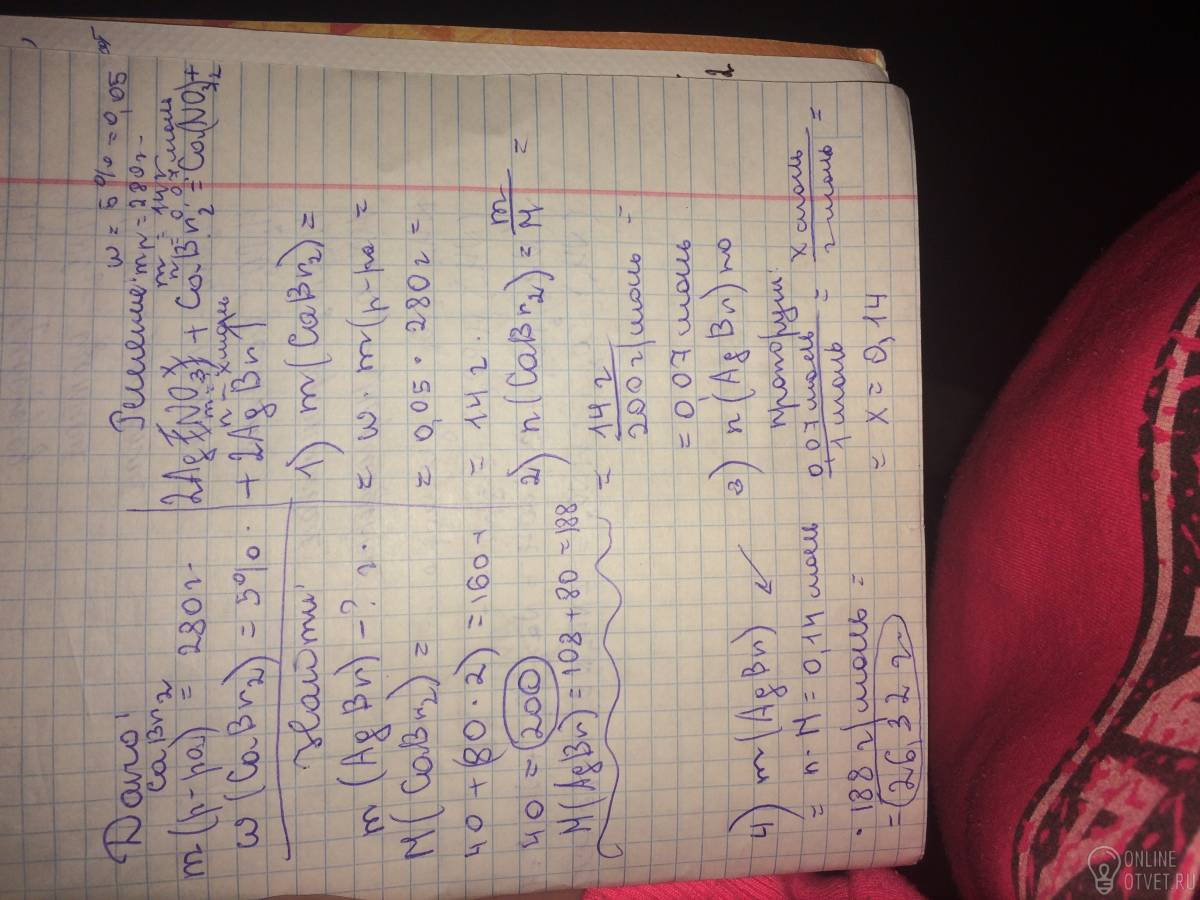 Дано:
CaBr2
m(р-ра) = 280г.
w(CaBr2) = 5%.
Найти:
m(AgBr) - ? г.
M(CaBr2) =
40 + (80 · 2) = 160 +
40 = 200
M(AgBr) = 108 + 80 = 188
w = 5% = 0,05
Решение: = 280г.
m = 14г
n = 0,07 моль
2AgNO3 + CaBr2 = Ca(NO3)2 +
n = x моль
+ 2AgBr
1) m(CaBr2) =
= w · m(р-ра =
= 0,05 · 280г =
= 14г.
2) n(CaBr2) = m/M =
= 14г/200г/моль =
= 0,07 моль
3) n(AgBr) по
пропорции:
0,07 моль/1 моль = x моль/2 моль =
= x = 0,14
4) m(AgBr)
= n · M = 0,14 моль
· 188 г/моль =
= 26,32 г
ONLINE
OTVET.RU